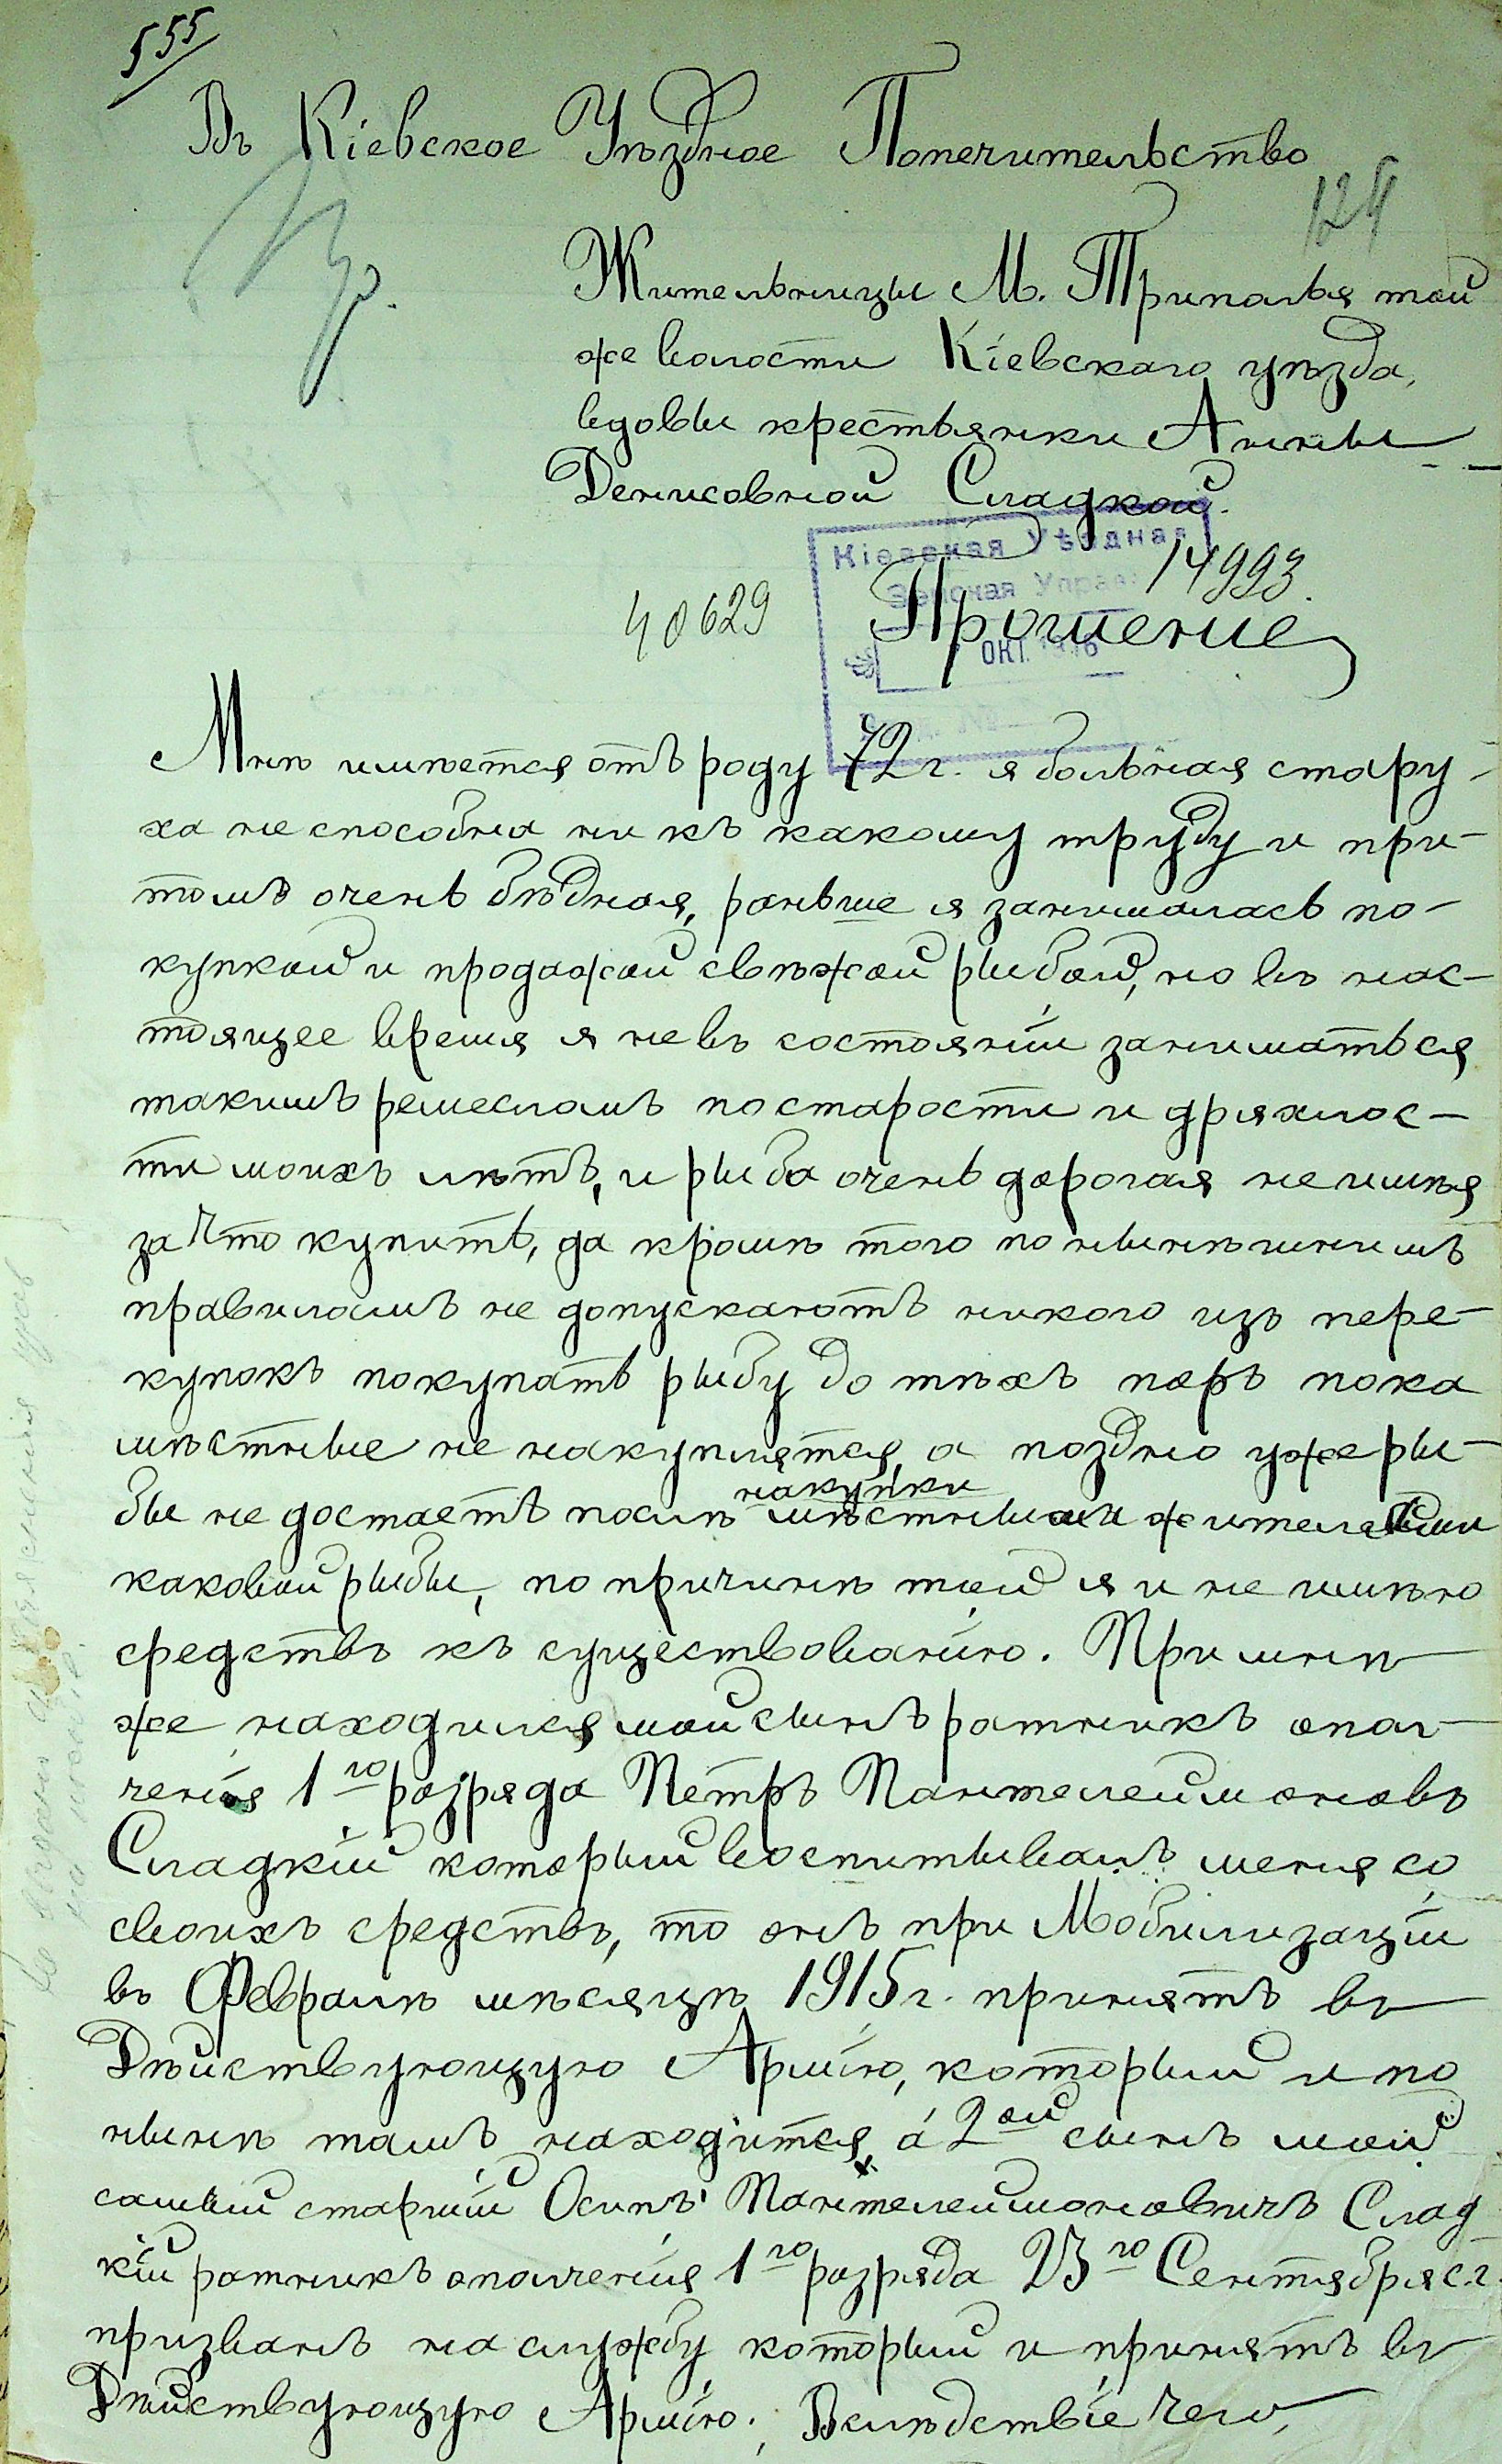 555
Въ Кіевское Уѣздное Попечительство
124
Жительницы М. Триполья той
же волости Кіевскаго уѣзда,
вдовы крестьянки Анны
Денисовной Сладкой.
Кіевская Уѣздная
Земская Управа
14993.
40629
Прошеніе
ОКТ. 1916
Мнѣ имѣется отъ роду 72 г. я больная стару-
ха не способна ни къ какому труду и при-
томъ очень бѣдная, раньше я занималась по-
купкой и продажей свѣжей рыбой, но въ нас-
тоящее время я не въ состояніи заниматься
такимъ ремесломъ по старости и дряхлос-
ти моихъ лѣтъ, и рыба очень дорогая не имѣя
за что купить, да кромѣ того по нынѣшнимъ
правиламъ не допускаютъ никого изъ пере-
купокъ покупать рыбу до тѣхъ поръ пока
мѣстные не накупятся, а поздно уже ры-
накупки
бы не достаетъ послѣ мѣстными жителями
каковой рыбы, по причинѣ той я и не имѣю
средствъ къ существованію. При мнѣ
же находился мой сынъ ратникъ опол-
ченія 1го разряда Петръ Пантелеймоновъ
Сладкій который воспитывалъ меня со
своихъ средствъ, то онъ при Мобилизаціи
въ Февралѣ мѣсяцѣ 1915 г. принятъ въ
Дѣйствующую Армію, который и по
нынѣ тамъ находится, а 2ой сынъ мой
самый старшій Осипъ Пантелеймоновичъ Слад
кій ратникъ ополченія 1го разряда 23го Сентября с.г.
призванъ на службу который и принятъ въ
Дѣйствующую Армію. Вслѣдствіе чего,